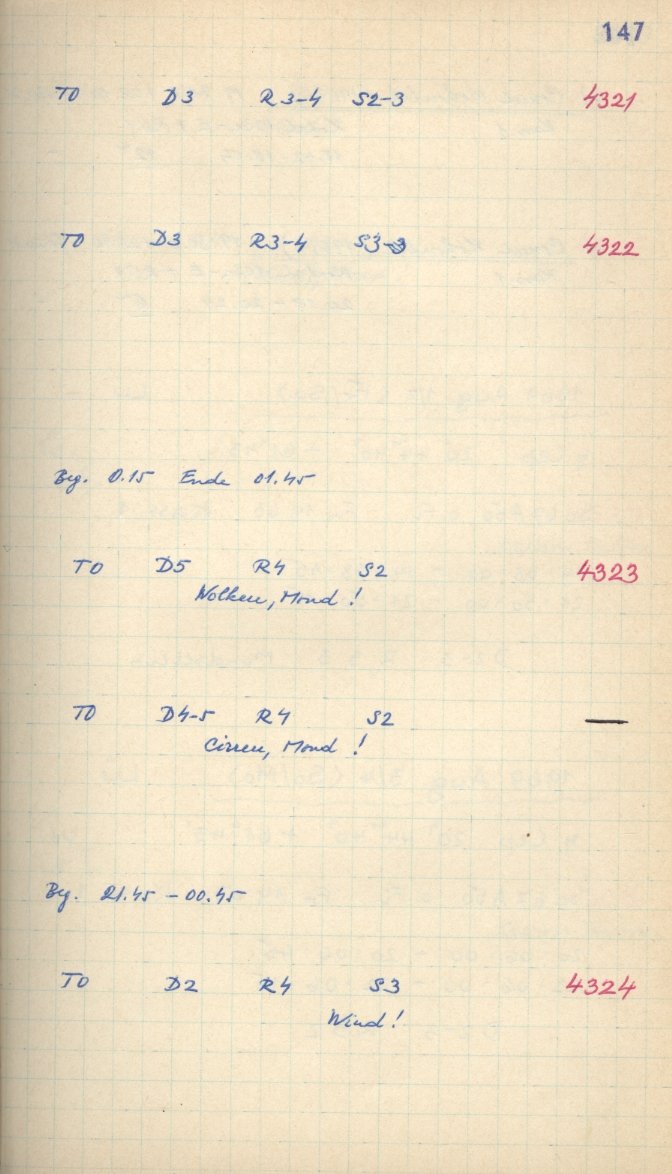 147
TO D3 R3-4 S2-3 4321
TO D3 R3-4 S3 4322
Beg. 0.15 Ende 01.45
TO D5 R4 S2 4323
Wolken, Mond!
TO D4-5 R4 S2 —
Cirren, Mond!
Beg. 21.45 - 00.45
TO D2 R4 S3 4324
Wind!